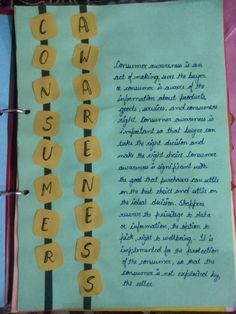 CONSUMER
AWARENESS
Consumer awareness is an
act of making sure the buyer
or consumer is aware of the
information about products,
goods, services, and consumers
right. Consumer awareness is
important so that buyer can
take the right decision and
make the right choice. Consumer
awareness is significant with
the goal that purchasers can settle
on the best choice and settle on
the ideal decision. Shoppers
reserve the privilege to data
or information, the option to
pick, right to wellbeing. It is
implemented for the protection
of the consumer, so that the
consumer is not exploited by
the seller.